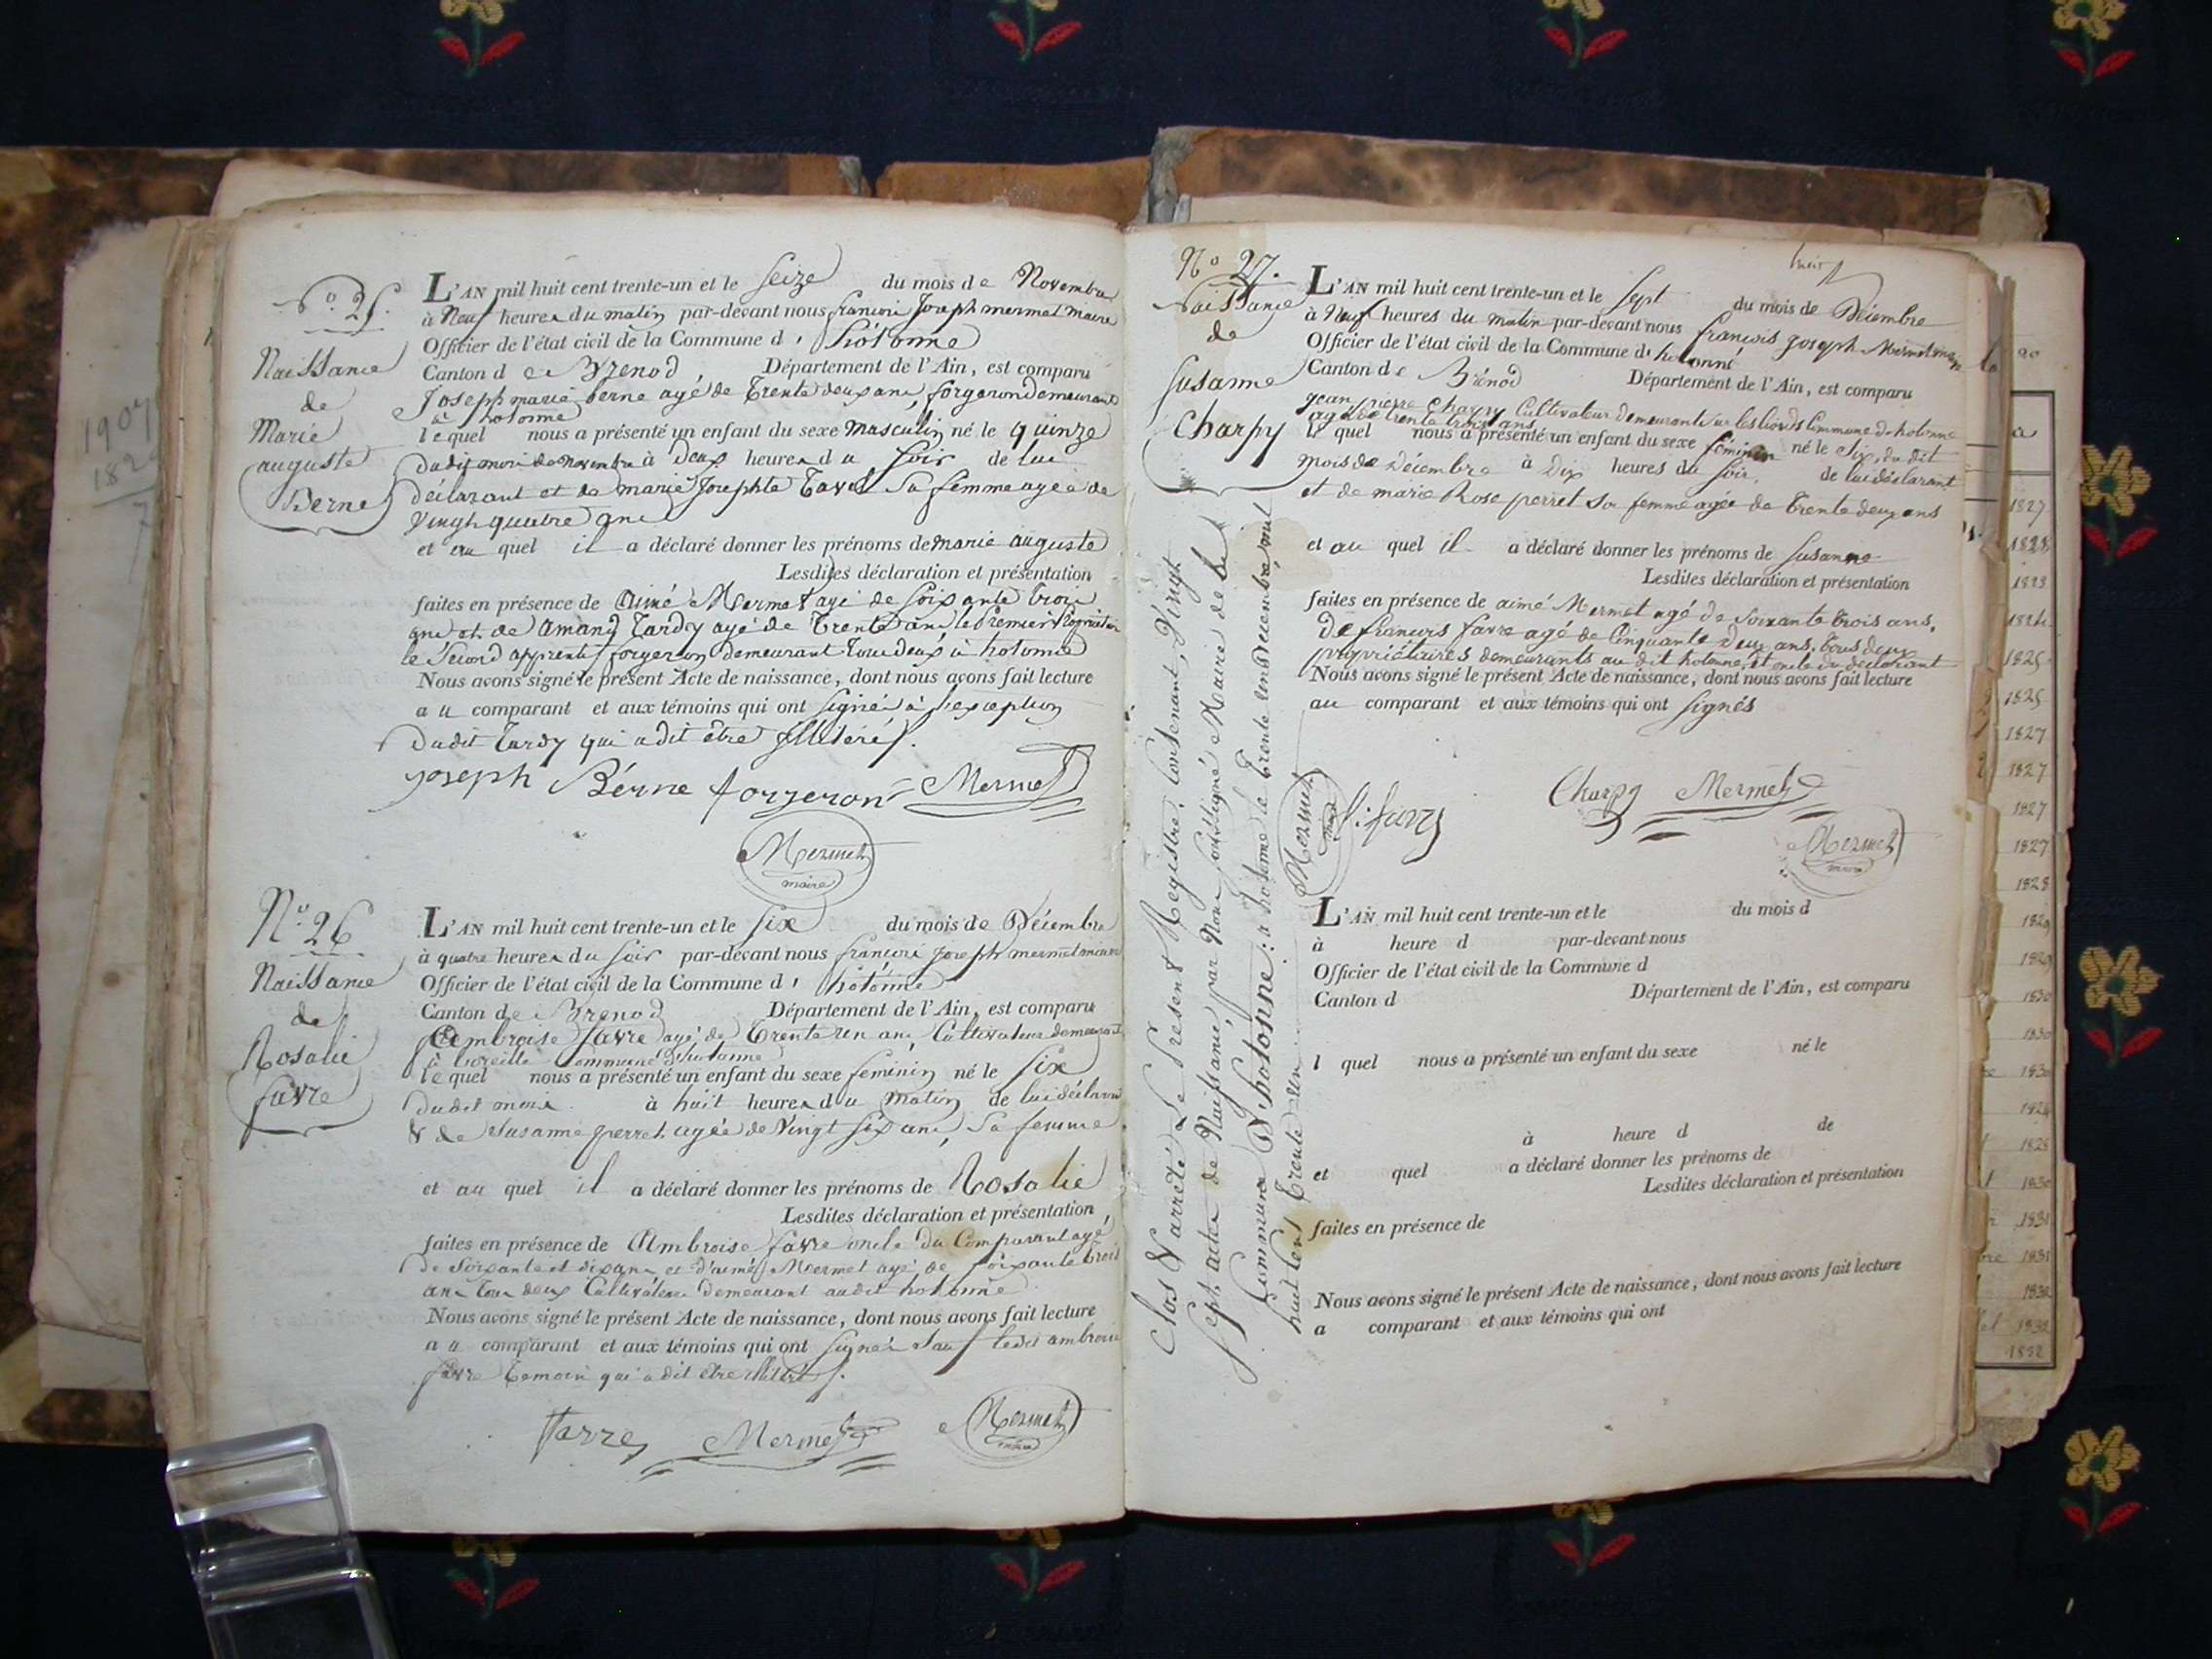 N.o 25.
Naissance
de
Marie
auguste
Berne
L'AN mil huit cent trente-un et le Seize du mois de Novembre
à Neuf heures du matin par-devant nous françois Joseph mermet maire
Officier de l'état civil de la Commune d' hotonne
Canton de Brenod, Département de l'Ain, est comparu
Joseph marie Berne agé de trente deux ans, forgeron demeurant
à hotonne
lequel nous a présenté un enfant du sexe masculin né le quinze
dudit mois de novembre à Deux heures du soir de lui
déclarant et de marie Josephte Tavel sa femme agée de
vingt quatre ans
et au quel il a déclaré donner les prénoms de marie auguste
Lesdites déclaration et présentation
faites en présence de Aimé Mermet agé de soixante trois
ans et de Amand Tardy agé de trente ans le Premier Propriétaire
le Second apprenti forgeron demeurant tous deux à hotonne
Nous avons signé le présent Acte de naissance, dont nous avons fait lecture
au comparant et aux témoins qui ont signés à l'exception
dudit Tardy qui a dit être illitéré.
Joseph Bérne forgeron Mermet
Mermet
maire
N.o 26
Naissance
de
Rosalie
favre
L'AN mil huit cent trente-un et le six du mois de Décembre
à quatre heures du soir par-devant nous françois Joseph mermet maire
Officier de l'état civil de la Commune d' hotonne
Canton de Brenod Département de l'Ain, est comparu
Ambroise favre agé de trente un ans, Cultivateur demeurant
à commune d'hotonne
lequel nous a présenté un enfant du sexe feminin né le six
dudit mois à huit heures du matin de lui déclarant
& de Susanne perret agée de vingt six ans, sa femme
et au quel il a déclaré donner les prénoms de Rosalie
Lesdites déclaration et présentation
faites en présence de Ambroise favre oncle du Comparant agé
de soixante et dix ans et d'aimé Mermet agé de soixante trois
ans tous deux Cultivateurs demeurant audit hotonne
Nous avons signé le présent Acte de naissance, dont nous avons fait lecture
au comparant et aux témoins qui ont signés sauf ledit ambroise
favre témoin qui a dit être illitéré.
favre Mermet
Mermet
maire
Clos & arrêté Le Present Registre, Contenant, Vingt
Sept actes de Naissance, par Nous soussigné Maire de la
Commune D'hotonne: à hotonne le trente un Décembre, mil
huit cent trente-un
Mermet
maire
N.o 27.
Naissance
de
Susanne
Charpy
L'AN mil huit cent trente-un et le sept du mois de Décembre
à Neuf heures du matin par-devant nous françois joseph Mermet maire
Officier de l'état civil de la Commune d' hotonne
Canton de Brénod Département de l'Ain, est comparu
jean pierre Charpy Cultivateur demeurant sur les Commune d'hotonne
agé de trente trois ans
le quel nous a présenté un enfant du sexe féminin né le Six, du dit
mois de Décembre à Dix heures du soir, de lui déclarant
et de marie Rose perret sa femme agée de trente deux ans
et au quel il a déclaré donner les prénoms de Susanne
Lesdites déclaration et présentation
faites en présence de aimé Mermet agé de soixante trois ans,
De françois favre agé de Cinquante deux ans, tous deux
propriétaires demeurants au dit hotonne, et oncle du déclarant
Nous avons signé le présent Acte de naissance, dont nous avons fait lecture
au comparant et aux témoins qui ont signés
Charpy Mermet
f: favre
Mermet
maire
L'AN mil huit cent trente-un et le du mois d
à heure d par-devant nous
Officier de l'état civil de la Commune d
Canton d Département de l'Ain, est comparu
l quel nous a présenté un enfant du sexe né le
à heure d de
et quel a déclaré donner les prénoms de
Lesdites déclaration et présentation
faites en présence de
Nous avons signé le présent Acte de naissance, dont nous avons fait lecture
a comparant et aux témoins qui ont
1827
1828
1823
1824
1825
1825
1827
1827
1827
1827
1828
1829
1829
1830
1830
1830
1824
1828
1830
1831
1831
1832
1832
1832